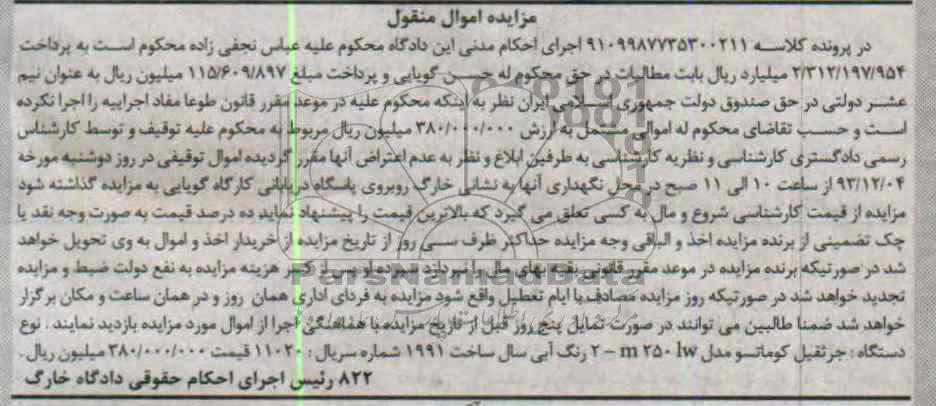 مزایده اموال منقول
در پرونده کلاسه ۹۱۰۹۹۸۷۷۳۵۳۰۰۲۱۱ اجرای احکام مدنی این دادگاه محکوم علیه عباس نجفی زاده محکوم است به پرداخت
۲/۳۱۲/۱۹۷/۹۵۴ میلیارد ریال بابت مطالبات در حق محکوم له حسن گویایی و پرداخت مبلغ ۱۱۵/۶۰۹/۸۹۷ میلیون ریال به عنوان نیم
عشر دولتی در حق صندوق دولت جمهوری اسلامی ایران نظر به اینکه محکوم علیه در موعد مقرر قانون طوعا مفاد اجراییه را اجرا نکرده
است و حسب تقاضای محکوم له اموالی مشتمل به ارزش ۳۸۰/۰۰۰/۰۰۰ میلیون ریال مربوط به محکوم علیه توقیف و توسط کارشناس
رسمی دادگستری کارشناسی و نظریه کارشناسی به طرفین ابلاغ و نظر به عدم اعتراض آنها مقرر گردیده اموال توقیفی در روز دوشنبه مورخه
۹۳/۱۲/۰۴ از ساعت ۱۰ الی ۱۱ صبح در محل نگهداری آنها به نشانی خارگ روبروی پاسگاه دریابانی کارگاه گویایی به مزایده گذاشته شود
مزایده از قیمت کارشناسی شروع و مال به کسی تعلق می گیرد که بالاترین قیمت را پیشنهاد نماید ده درصد قیمت به صورت وجه نقد یا
چک تضمینی از برنده مزایده اخذ و الباقی وجه مزایده حداکثر ظرف سی روز از تاریخ مزایده از خریدار اخذ و اموال به وی تحویل خواهد
شد در صورتیکه برنده مزایده در موعد مقرر قانونی بقیه بهای مال را نپردازد سپرده او پس از کسر هزینه مزایده به نفع دولت ضبط و مزایده
تجدید خواهد شد در صورتیکه روز مزایده مصادف با ایام تعطیل واقع شود مزایده به فردای اداری همان روز و در همان ساعت و مکان برگزار
خواهد شد ضمنا طالبین می توانند در صورت تمایل پنج روز قبل از تاریخ مزایده با هماهنگی اجرا از اموال مورد مزایده بازدید نمایند . نوع
دستگاه : جرثقیل کوماتسو مدل ۲ – m ۲۵۰ lw رنگ آبی سال ساخت ۱۹۹۱ شماره سریال : ۱۱۰۲۰ قیمت ۳۸۰/۰۰۰/۰۰۰ میلیون ریال .
۸۲۲ رئیس اجرای احکام حقوقی دادگاه خارگ
ParsNamadData